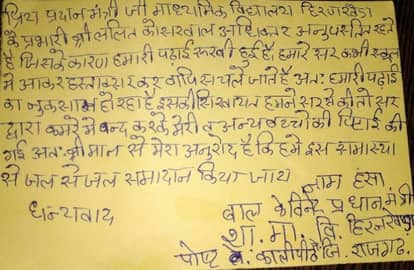 प्रिय प्रधानमंत्री जी माध्यमिक विद्यालय हिरनखेडा
के प्रभारी श्री ललित कोसरवाल अधिकतर अनुपस्तित रहते
है जिसके कारण हमारी पढाई रूखी हुई है हमारे सर कभी स्कूल
मे आकर हस्ताक्सर कर वापिस चले जाते है अतः हमारी पढाई
का नुकसान हो रहा है इसकी सिखायत हमने सर से की तो सर
द्वारा कमरे मे बन्द करके मेरी व अन्य बच्चो की पिटाई की
गई अतः श्री मान से मेरा अनुरोद है कि हमे इस सामास्या
से जल से जल समादान किया जाय
धन्यवाद
नाम हंसा
बाल केविनेट प्रधानमंत्री
शा. मा. वि. हिरनखेडा
पोष्ट कालीपीठ जि. राजगढ़.